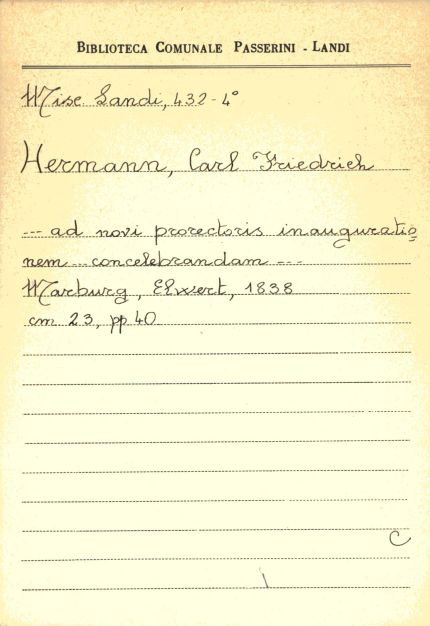 BIBLIOTECA COMUNALE PASSERINI - LANDI
Misc. Landi, 432-4°
Hermann, Carl Friedrich
--- ad novi prorectoris inauguratio=
nem ... concelebrandam ---
Marburg, Elwert, 1838
cm 23, pp 40
C